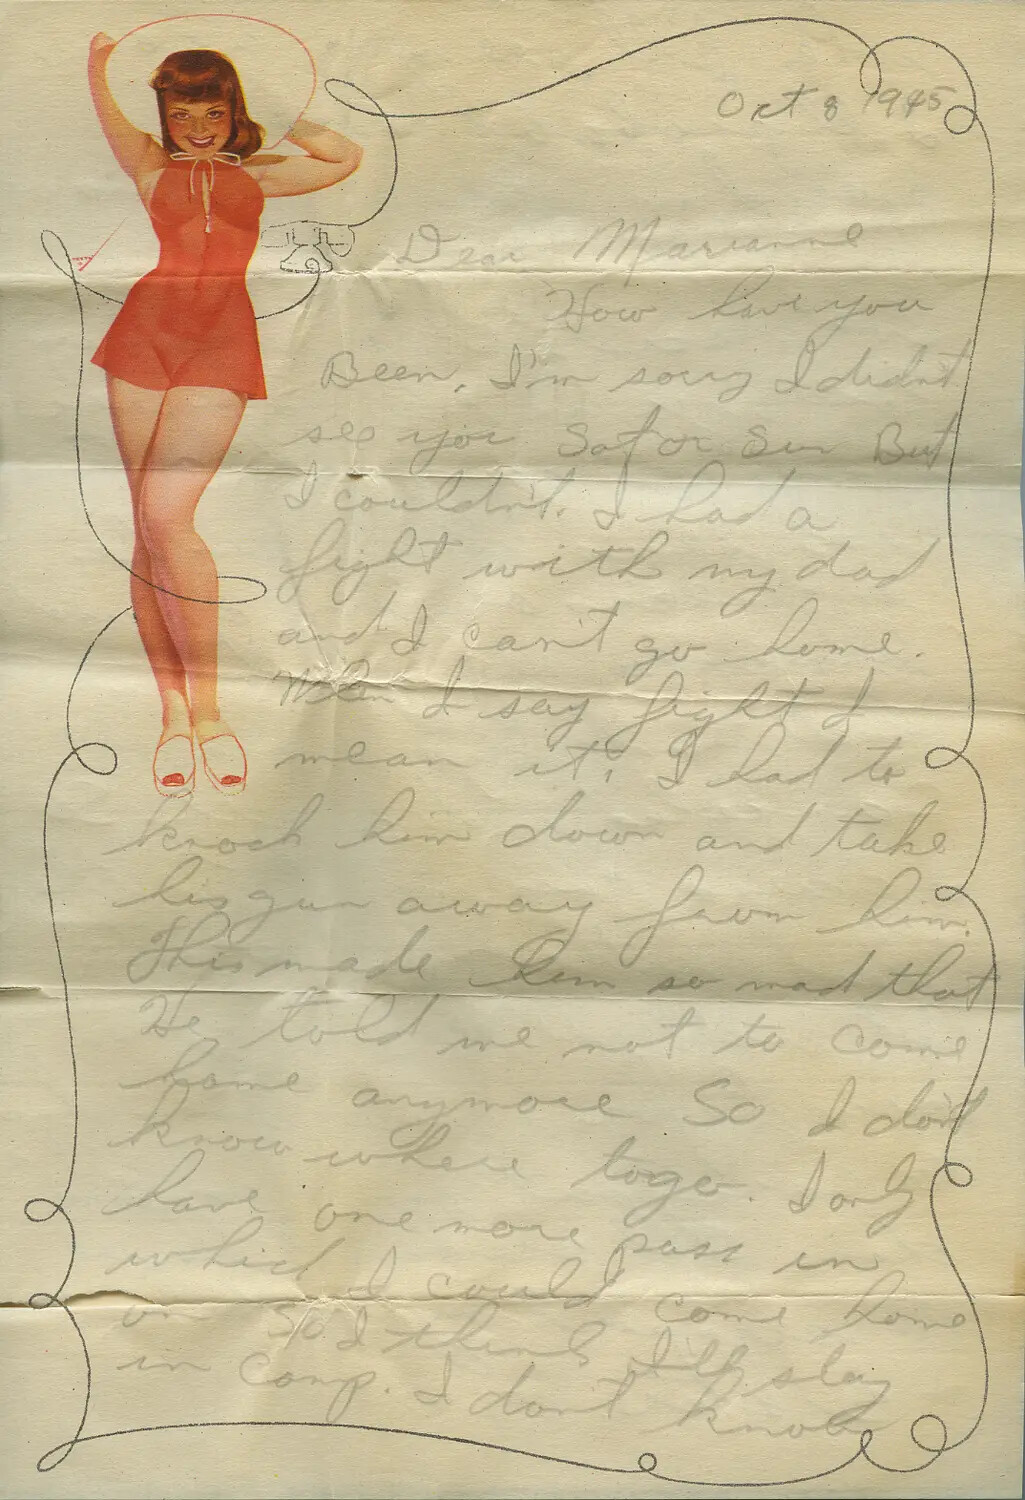 Oct 8 1945
Dear Marianne
How have you
Been, I'm sorry I didn't
see you Sat or Sun But
I couldn't. I had a
fight with my dad
and I can't go home.
When I say fight I
mean it, I had to
knock him down and take
his gun away from him.
This made him so mad that
He told me not to come
home anymore So I don't
know where togo. I only
have one more pass in
which I could come home
on So I think I'll stay
in camp. I don't know